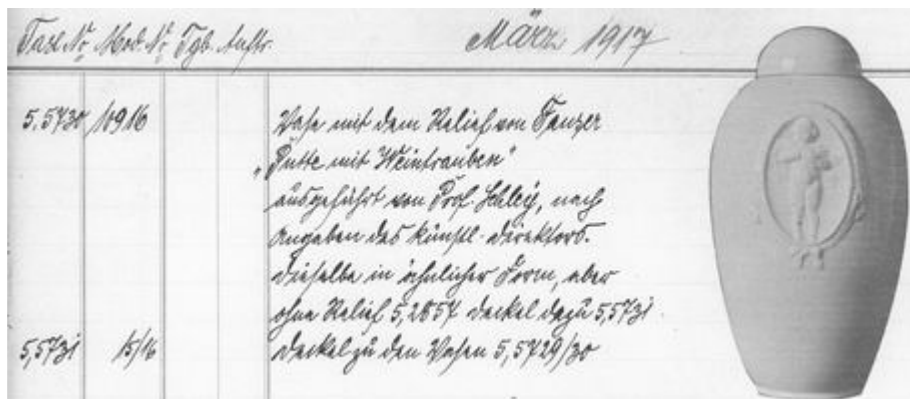 Taxl. Nr. Mod. Nr. Tgb. Auftr. März 1917
5,5730 109/16 Vase mit dem Relief von Fanzer
„Putte mit Weintrauben"
ausgeführt von Prof. Schley, nach
Angaben des künstl. Direktors.
Dieselbe in ähnlicher Form, aber
ohne Relief 5,2857 Deckel dazu 5,5731
5,5731 15/16 Deckel zu den Vasen 5,5729/30